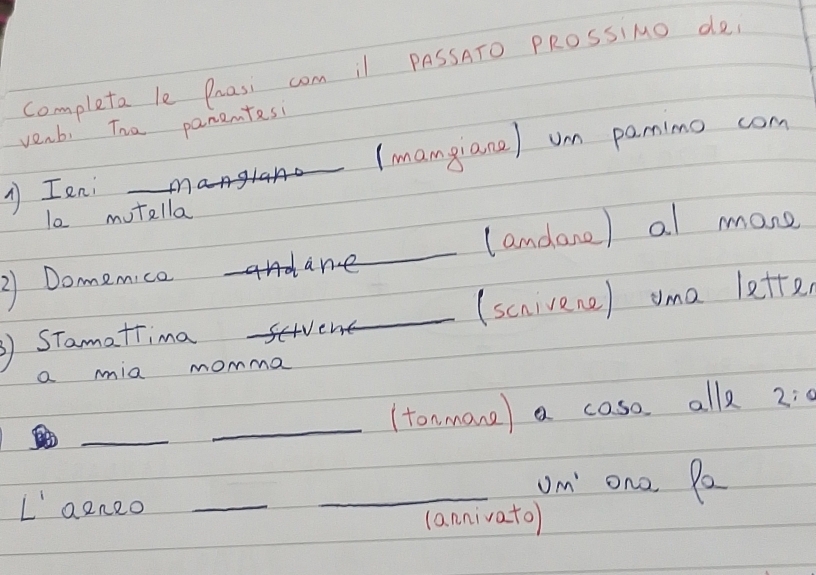 Completa le frasi con il PASSATO PROSSIMO dei
verbi Tra parentesi
1) Ieri mangiano (mangiare) un panino con
la nutella
2) Domenica andane (andare) al mare
3) Stamattina (scrivere) una letter
a mia nonna
(tornare) a casa alle 2:0
L' aereo un' ora fa
(arrivato)